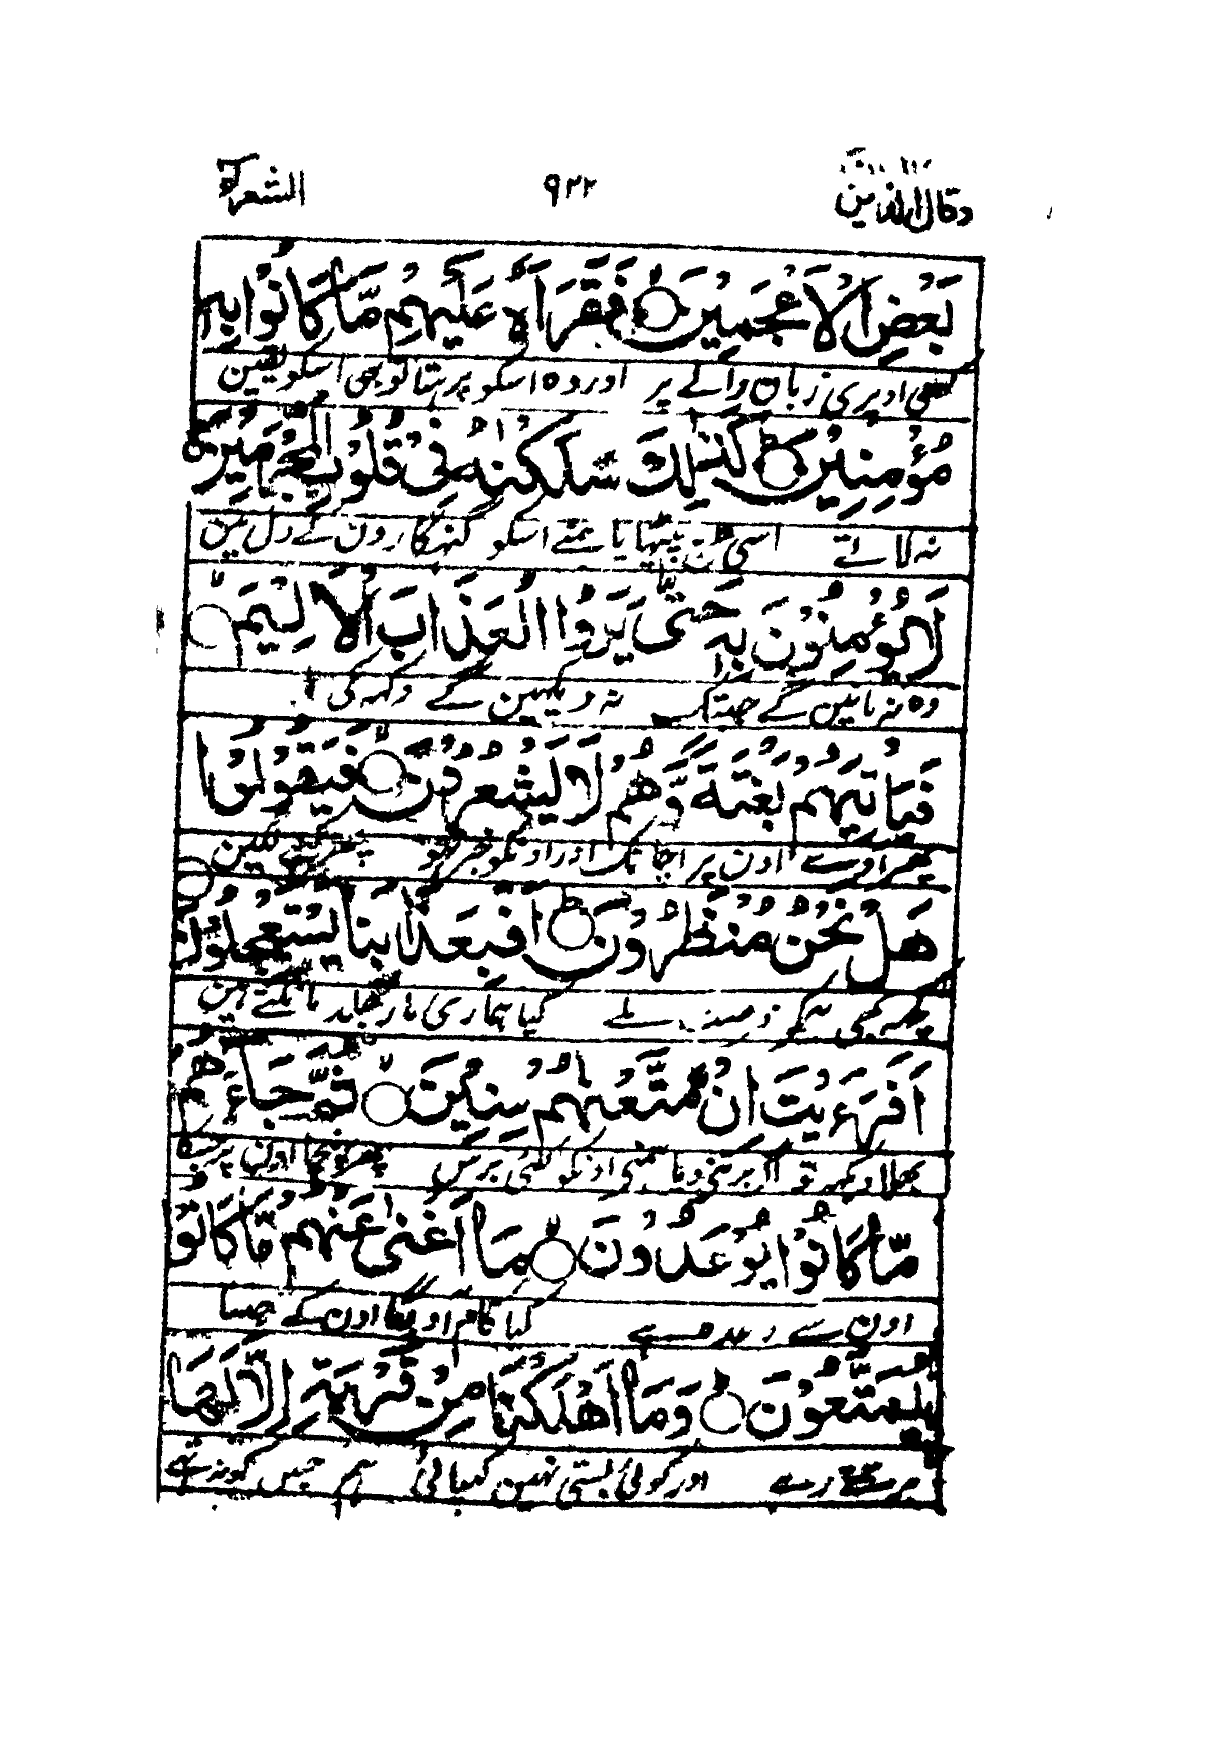 وقال الذين ٩٢٢ الشعراء
بَعْضِ الْأَعْجَمِيْنَ ۙ فَقَرَاَهٗ عَلَيْهِمْ مَّا كَانُوْا بِهٖ
اوپری زبان والے پر اور وہ اسکو پڑہتا تو بھی اسکو یقین
مُؤْمِنِيْنَ ؕ كَذٰلِكَ سَلَكْنٰهُ فِيْ قُلُوْبِ الْمُجْرِمِيْنَ ؕ
نہ لاتے اسی اسکو گنہگارون کے دل مین
لَا يُؤْمِنُوْنَ بِهٖ حَتّٰى يَرَوُا الْعَذَابَ الْاَلِيْمَ ۙ
وہ نہ مانین گے جبتک نہ دیکہین گے دکہہ کی
فَيَاْتِيَهُمْ بَغْتَةً وَّهُمْ لَا يَشْعُرُوْنَ ۙ فَيَقُوْلُوْا
پھر آوے اون پر اچانک اور اونکو خبر نہو پھر کہنے لگین
هَلْ نَحْنُ مُنْظَرُوْنَ ؕ اَفَبِعَذَابِنَا يَسْتَعْجِلُوْنَ
کچہہ بھی ہمکو ملے کیا ہماری مار جلد مانگتے ہین
اَفَرَءَيْتَ اِنْ مَّتَّعْنٰهُمْ سِنِيْنَ ۙ ثُمَّ جَآءَهُمْ
بھلا دیکہہ تو اگر برتنی دیا ہمنے اونکو کئی برس پھر پہونچا اون پر
مَّا كَانُوْا يُوْعَدُوْنَ ۙ مَآ اَغْنٰى عَنْهُمْ مَّا كَانُوْا
اون سے وعدہ ہے کیا کام آویگا اون کے جتنا
يُمَتَّعُوْنَ ؕ وَمَآ اَهْلَكْنَا مِنْ قَرْيَةٍ اِلَّا لَهَا
برتتے رہے اور کوئی بستی نہین کھپائی ہم جس کو نہ تھے